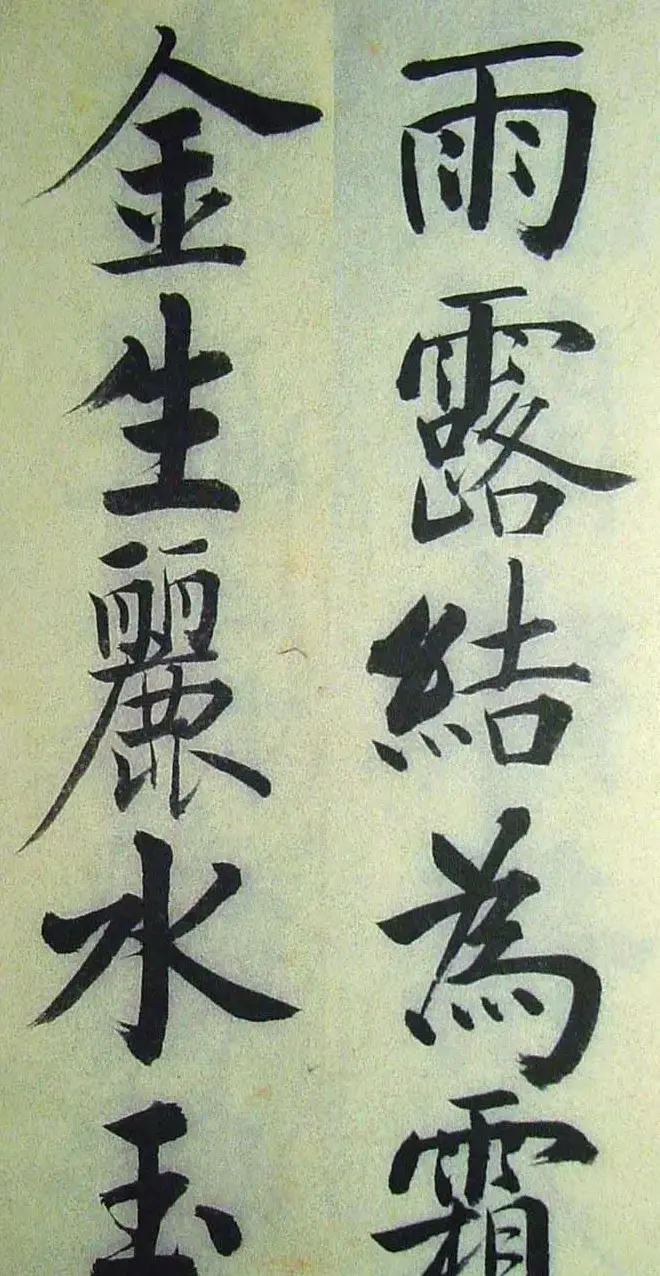 雨露結為霜
金生麗水玉